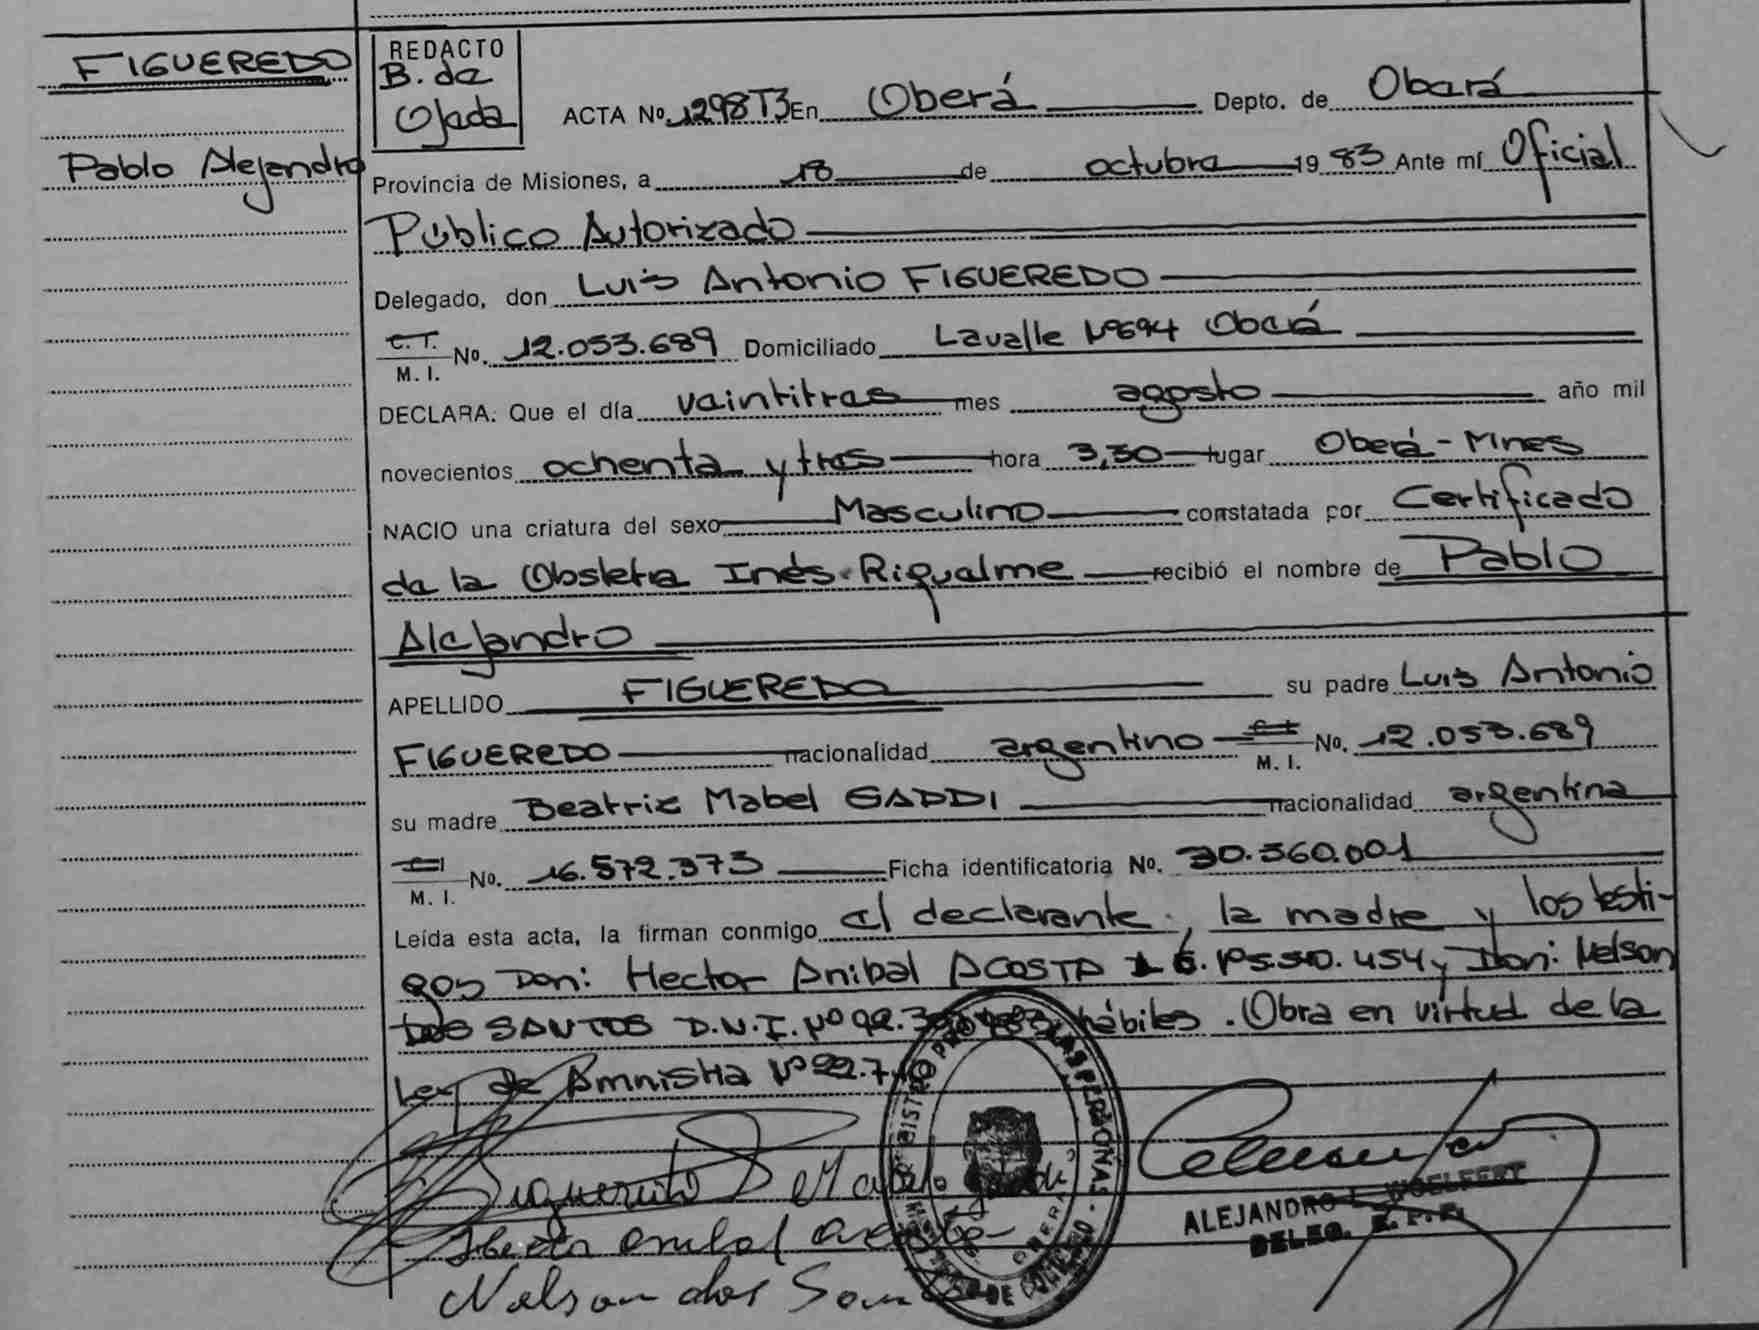 FIGUEREDO
Pablo Alejandro
REDACTO
B. de
Ojeda
ACTA No. 1298T3 En Oberá Depto. de Oberá
Provincia de Misiones, a 18 de octubre 19 83 Ante mí Oficial
Público Autorizado
Delegado, don Luis Antonio FIGUEREDO
C. I.
M. I. No. 12.053.689 Domiciliado Lavalle Nº694 Oberá
DECLARA: Que el día veintitres mes agosto año mil
novecientos ochenta y tres hora 3,30 lugar Oberá - Mnes
NACIO una criatura del sexo Masculino constatada por Certificado
de la Obstetra Inés Riquelme recibió el nombre de Pablo
Alejandro
APELLIDO FIGUEREDO su padre Luis Antonio
FIGUEREDO nacionalidad argentino M. I. No. 12.053.689
su madre Beatriz Mabel GADDI nacionalidad argentina
M. I. No. 16.572.373 Ficha identificatoria No. 30.360.001
Leída esta acta, la firman conmigo el declarante, la madre y los testi-
gos Don: Hector Anibal ACOSTA y Don: Nelson
DOS SANTOS D.N.I. Nº 92. hábiles. Obra en virtud de la
Ley de Amnistia Nº 22.7
Hector Anibal Acosta
Nelson dos San
REGISTRO PROV. DE LAS PERSONAS
OBERA
ALEJANDRO L. WOELFERT
DELEG. R. P. P.